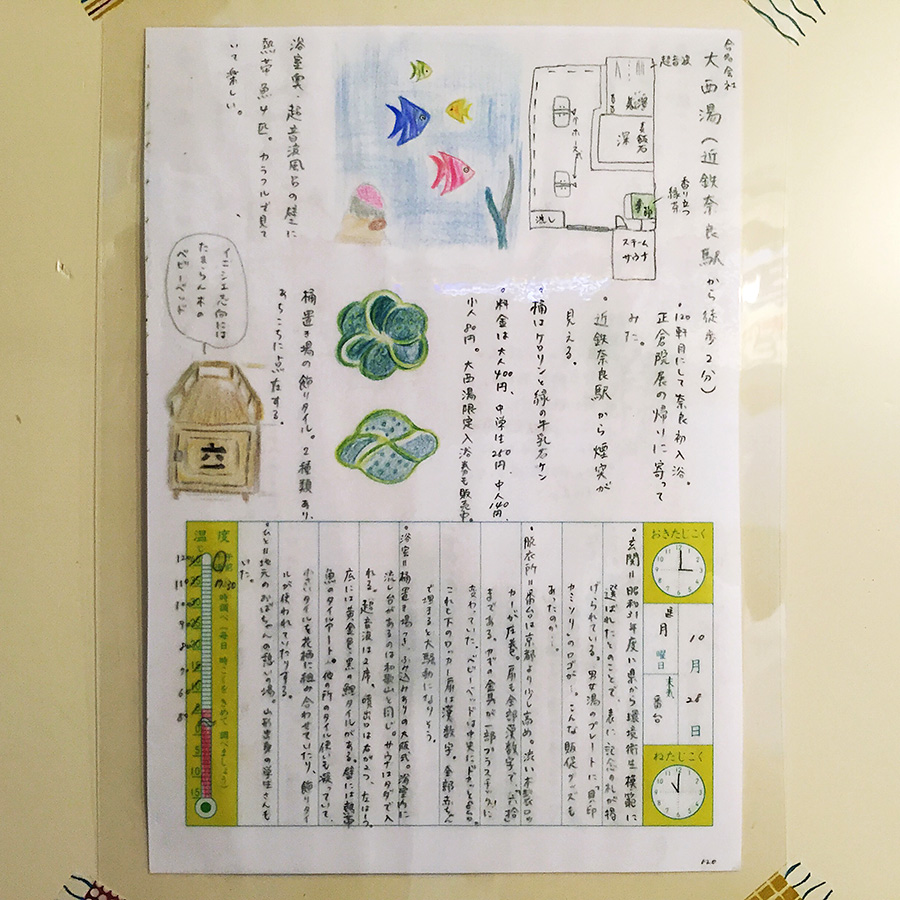 合名会社
大西湯(近鉄奈良駅から徒歩2分)
超音波
深
香り立つ
緑茶
流し
スチーム
サウナ
浴室奥、超音波風呂の壁に
熱帯魚4匹。カラフルで見て
いて楽しい。
・120軒目にして奈良初入浴。
正倉院展の帰りに寄って
みた。
・近鉄奈良駅から煙突が
見える。
・桶はケロリンと緑の牛乳石ケン
・料金は大人400円、中学生250円、中人140円、
小人80円。大西湯限定入浴券も販売中。
桶置き場の飾りタイル。2種類あり、
あちこちに点在する。
イニシエ志向には
たまらん木の
ベビーベッド
六一
おきたじこく
10月28日
月曜日
番台
ねたじこく
・玄関=昭和31年度に県から環境衛生模範に
選ばれたとのことで、表に記念の札が掲
げられている。男女湯のプレートに「貝印
カミソリ」のロゴが…。こんな販促グッズも
あったのか。
・脱衣所=番台は京都より少し高め。渋い木製ロッ
カーが圧巻。扉も全部漢数字で「六拾」
まである。カギの金具が一部プラスチックに
変わっていた。ベビーベッドは中央にドカッと5台。
これと下のロッカー扉は漢数字。全部赤ちゃん
で埋まると大騒動になりそう。
・浴室=桶置き場つき、小ぢんまりの大阪式。浴室内に
流し台があるのは和歌山と同じ。サウナはタダで入
れる。超音波は2席、噴出口は右が2つ、左は1つ。
広には黄金・墨・黒の鯉タイルがある。壁には熱帯
魚のタイルアート。他の所のタイル使いも凝っていて、
小さいタイルを花柄に組み合わせていたり、飾りタイ
ルが使われていたりする。
・ひと=地元のおばちゃんの憩いの場。山形出身の学生さんも
いた。
温度
時調べ(毎日時こくをきめて調べましょう)